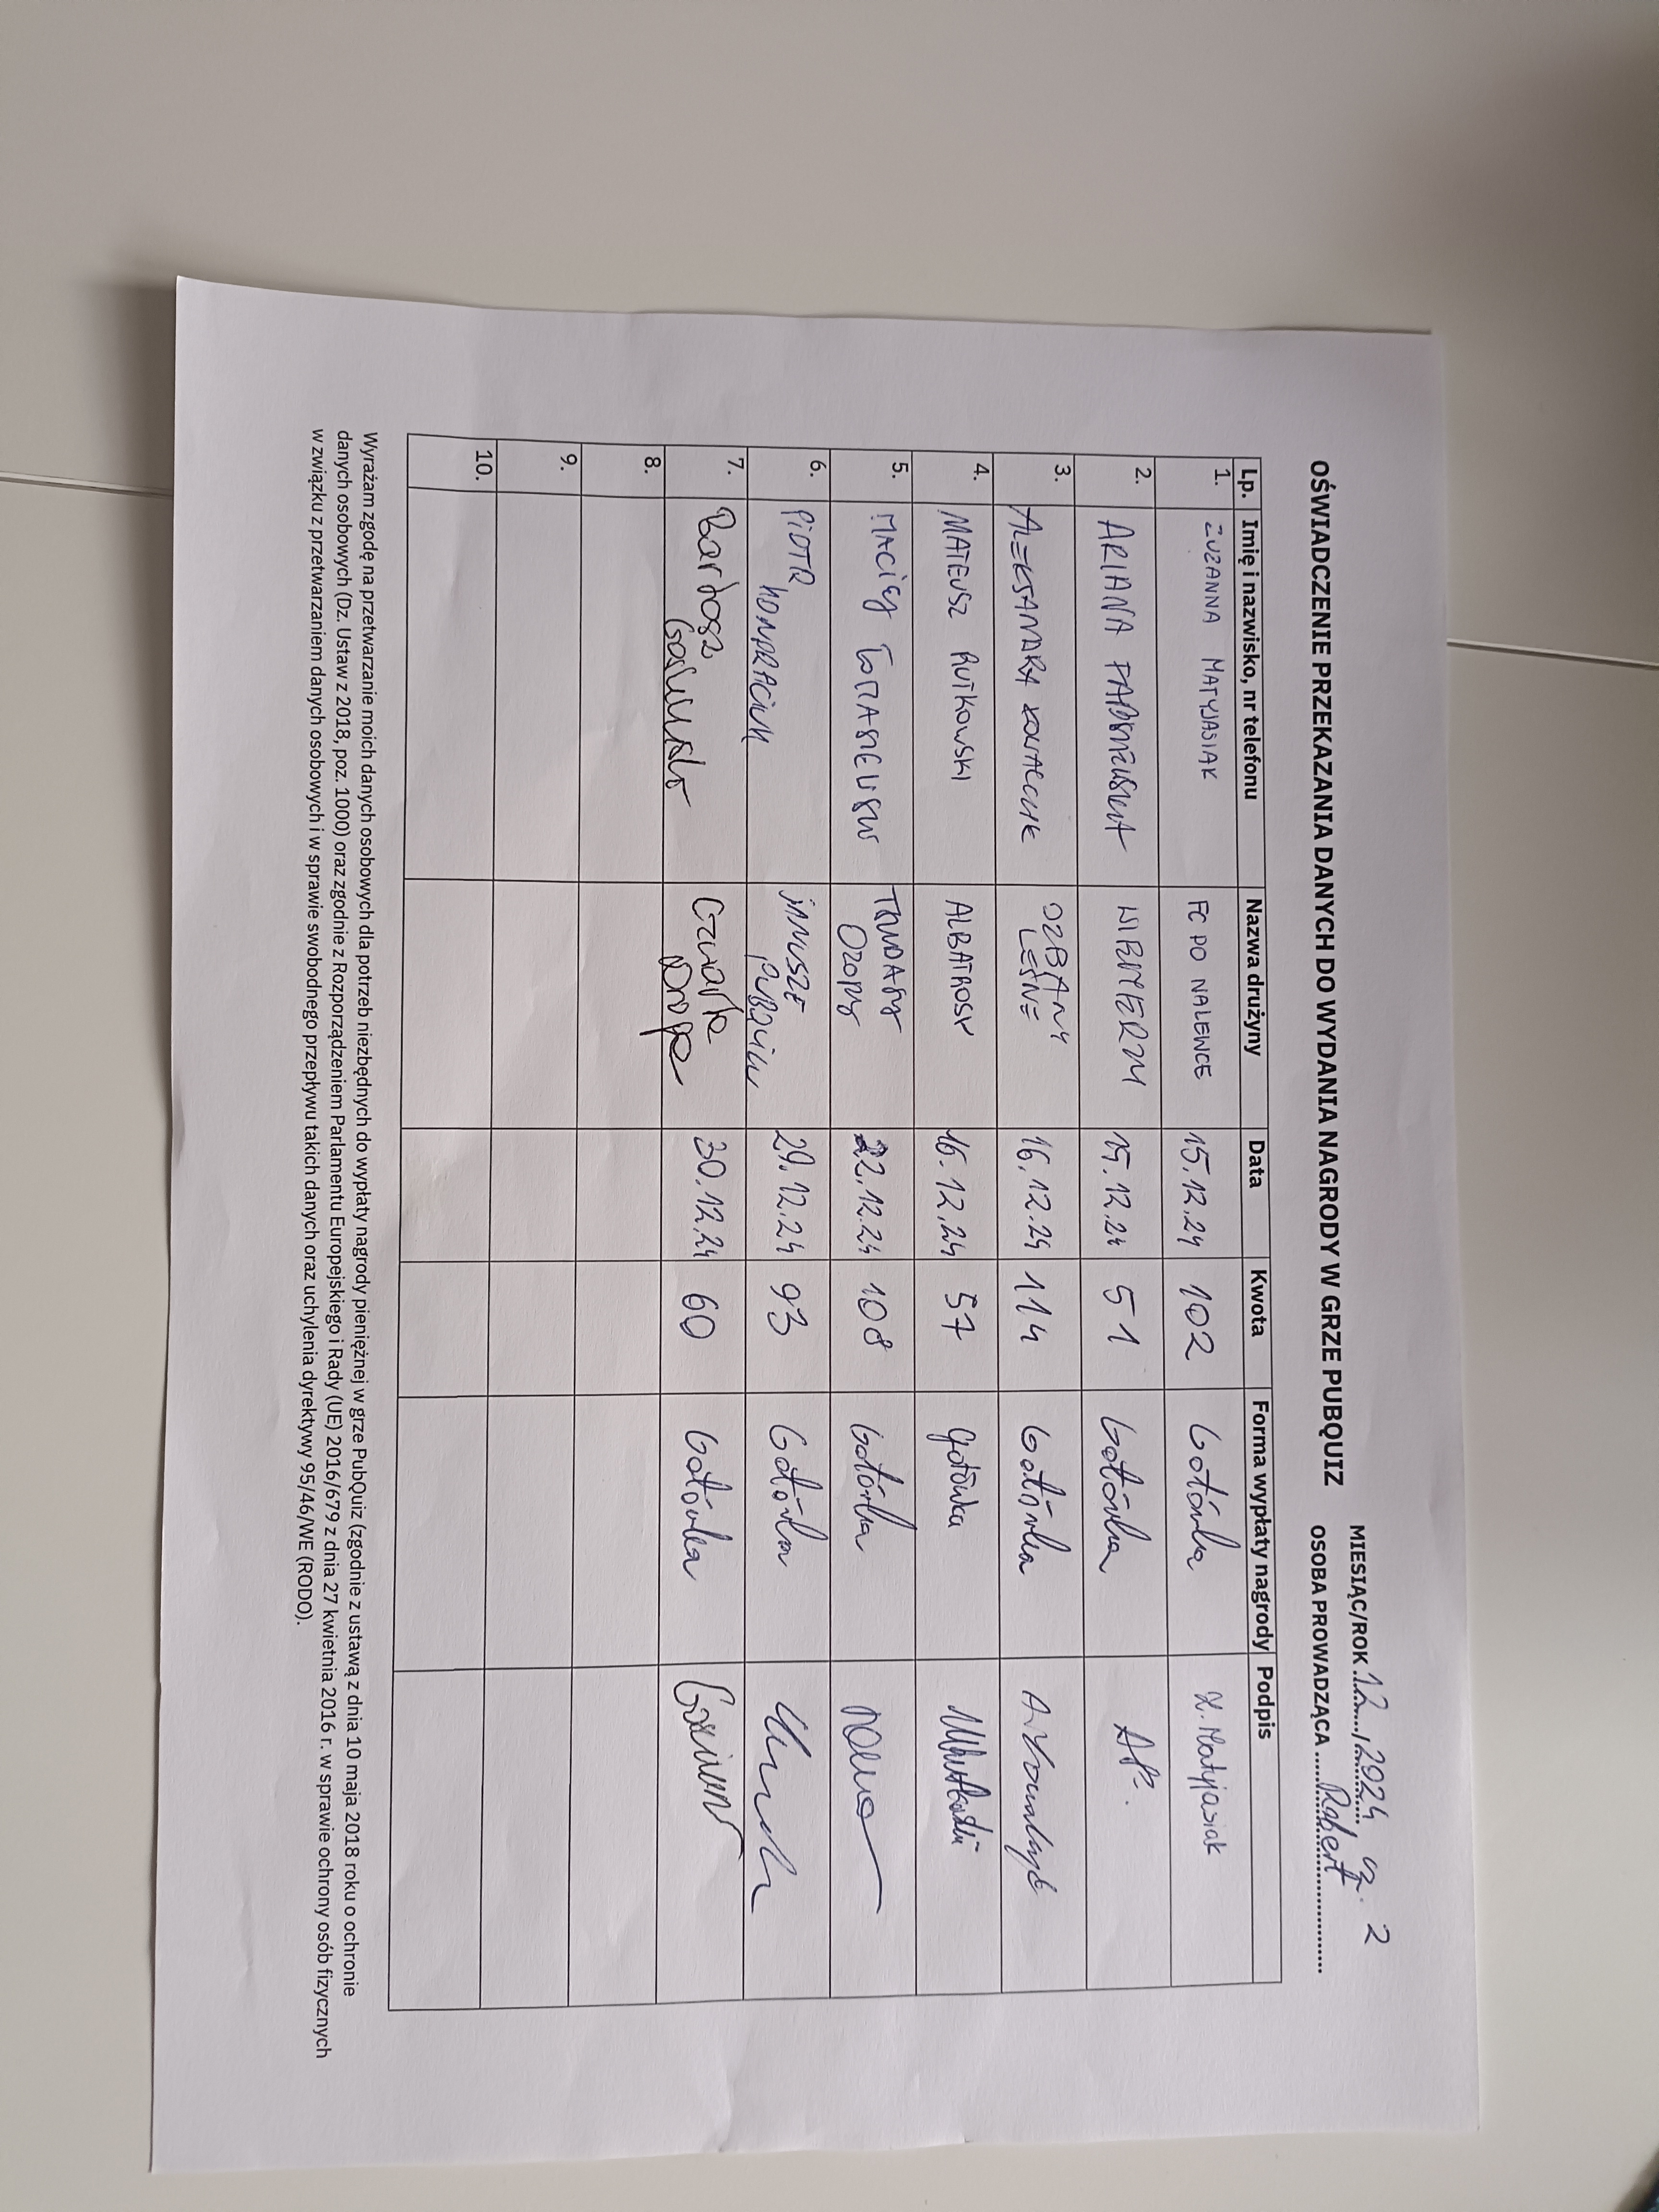 OŚWIADCZENIE PRZEKAZANIA DANYCH DO WYDANIA NAGRODY W GRZE PUBQUIZ
MIESIĄC/ROK 12 / 2024 cz. 2
OSOBA PROWADZĄCA Robert
Lp. Imię i nazwisko, nr telefonu Nazwa drużyny Data Kwota Forma wypłaty nagrody Podpis
1. ZUZANNA MATYJASIAK FC PO NALEWCE 15.12.24 102 Gotówka Z. Matyjasiak
2. ARIANA 15.12.24 51 Gotówka AP.
3. ALEKSANDRA KOWALCZYK DZBANY LEŚNE 16.12.24 114 Gotówka A. Kowalczyk
4. MATEUSZ RUTKOWSKI ALBATROSY 16.12.24 57 gotówka MRutkowski
5. MACIEJ 22.12.24 108 Gotówka
6. PIOTR JANUSZE 29.12.24 93 Gotówka
7. Bartosz Czwarta 30.12.24 60 Gotówka
8.
9.
10.
Wyrażam zgodę na przetwarzanie moich danych osobowych dla potrzeb niezbędnych do wypłaty nagrody pieniężnej w grze PubQuiz (zgodnie z ustawą z dnia 10 maja 2018 roku o ochronie
danych osobowych (Dz. Ustaw z 2018, poz. 1000) oraz zgodnie z Rozporządzeniem Parlamentu Europejskiego i Rady (UE) 2016/679 z dnia 27 kwietnia 2016 r. w sprawie ochrony osób fizycznych
w związku z przetwarzaniem danych osobowych i w sprawie swobodnego przepływu takich danych oraz uchylenia dyrektywy 95/46/WE (RODO).